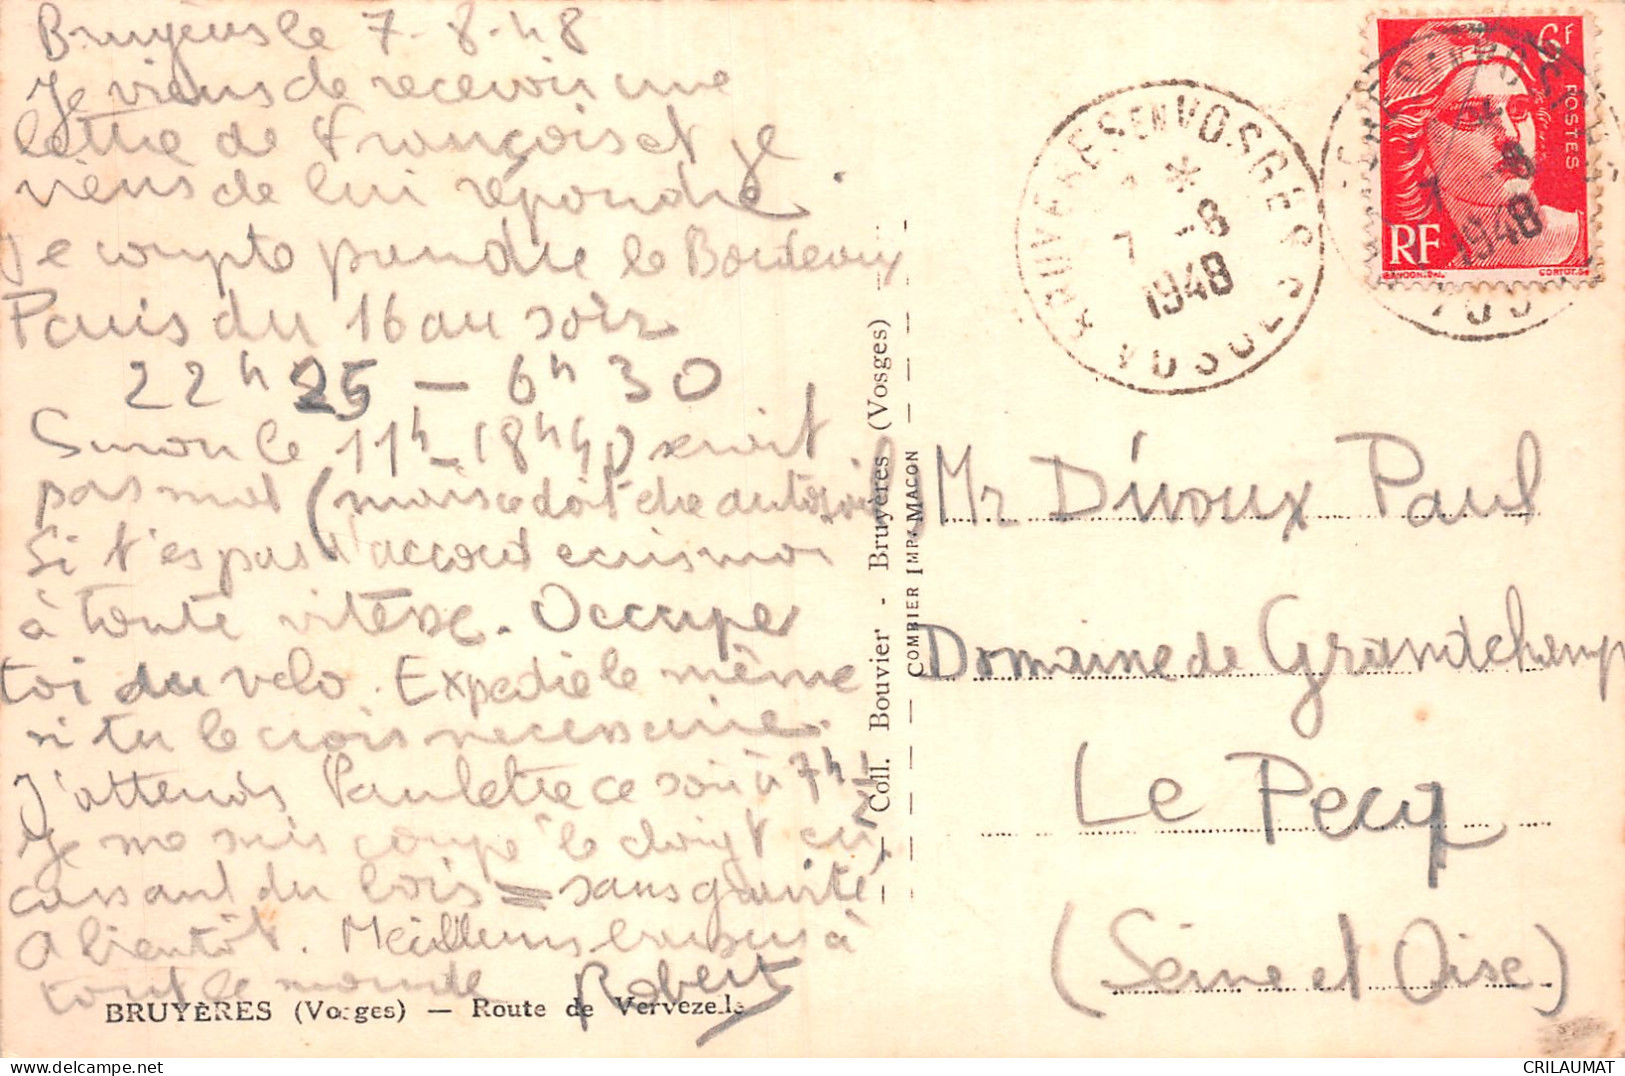 Bruyères le 7-8-48
Je viens de recevoir une
lettre de François et je
viens de lui répondre
Je compte prendre le Bordeaux
Paris du 16 au soir
22h25 — 6h30
Sinon le 11h-18h40 serait
pas mal (mais ce doit être autorail)
Si t'es pas d'accord écris moi
à toute vitesse. Occupe
toi du vélo. Expédie le même
si tu le crois nécessaire.
J'attends Paulette ce soir à 7h 1/2
Je me suis coupé le doigt en
cassant du bois = sans gravité
A bientôt. Meilleurs baisers à
tout le monde Robert
BRUYÈRES (Vosges) — Route de Vervezelle
Coll. Bouvier - Bruyères (Vosges)
COMBIER IMP. MACON
BRUYERES EN VOSGES
*
7 -8
1948
VOSGES
6F
POSTES
RF
GANDON. DEL.
CORTOT. SC
7 -8
1948
Mr Divoux Paul
Domaine de Grandchamp
Le Pecq
(Seine et Oise)
CRILAUMAT